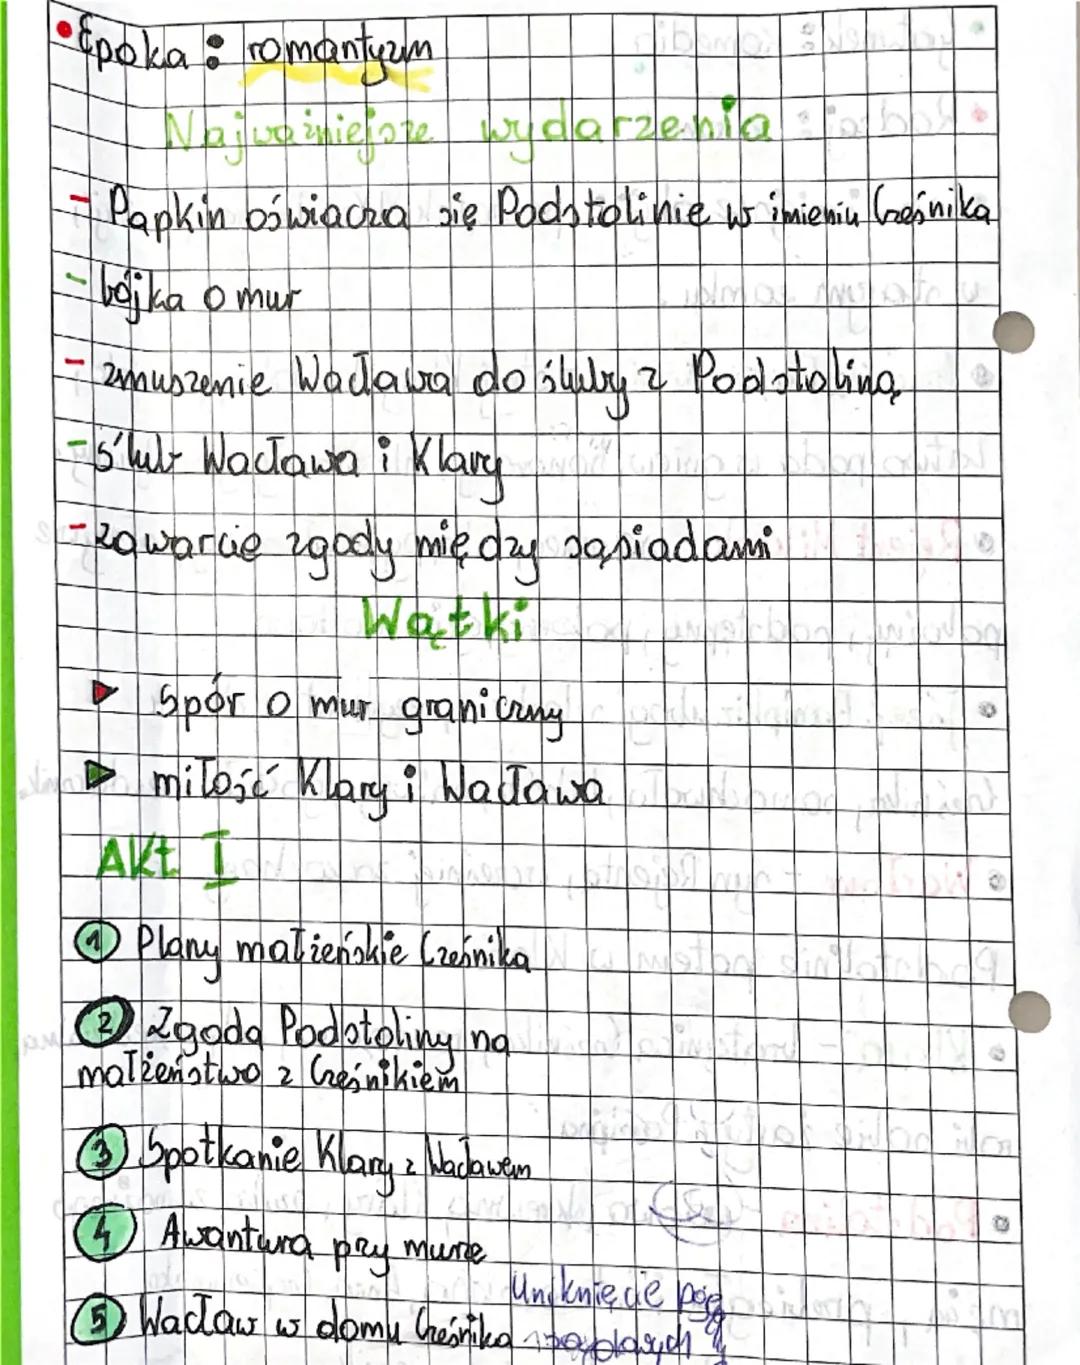 • Epoka : romantyzm
Najważniejsze wydarzenia
- Papkin oświacza się Podstolinie w imieniu Cześnika
- bójka o mur
- zmuszenie Wacława do śluby z Podstoliną
- ślub Wacława i Klary
- zawarcie zgody między sąsiadami
Wątki
▶ Spór o mur graniczny
▶ miłość Klary i Wacława
Akt I
1 Plany małżeńskie Cześnika
2 Zgoda Podstoliny na
małżeństwo z Cześnikiem
3 Spotkanie Klary z Wacławem
4 Awantura przy murze
Uniknięcie
5 Wacław w domu Cześnika